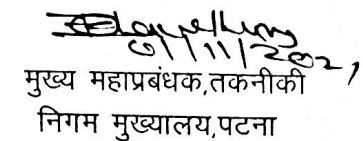 01/11/2021
मुख्य महाप्रबंधक,तकनीकी
निगम मुख्यालय,पटना